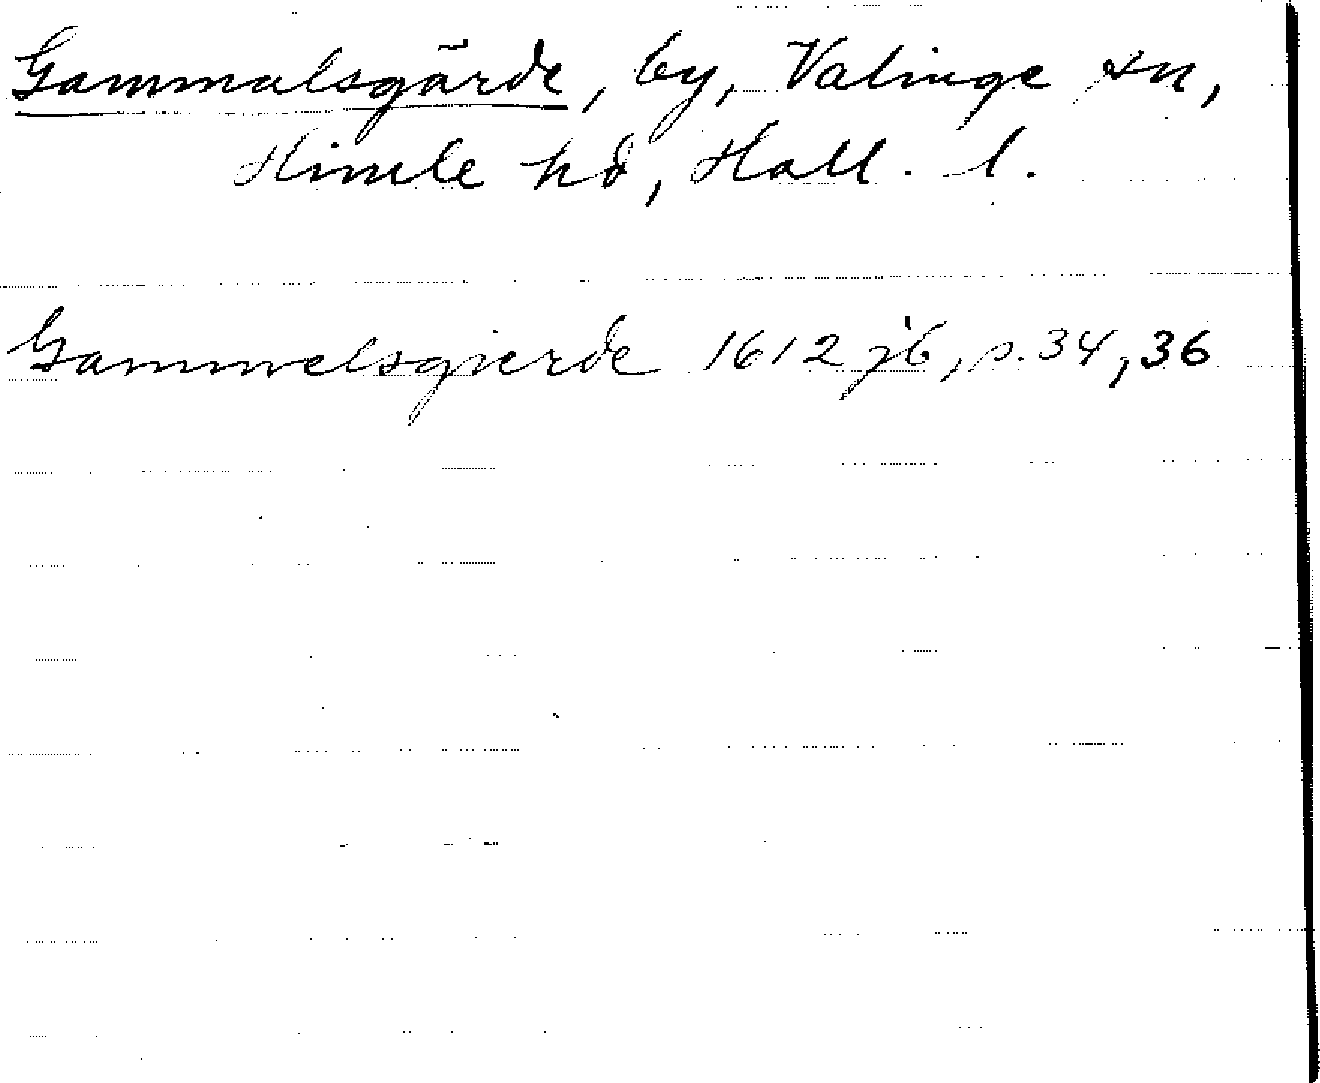 Gammalsgärde, by, Valinge sn,
Himle hd, Hall. l.
Gammelsgierde 1612 jb, p. 34, 36